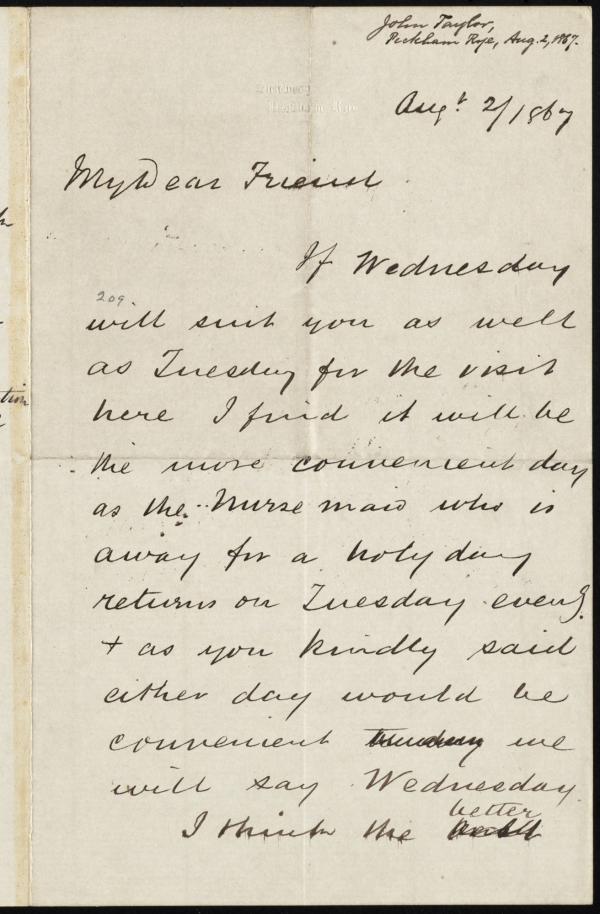 John Taylor,
Peckham Rye, Aug. 2, 1867.
Augt 2/1867
My Dear Friend
If Wednesday
209
will suit you as well
as Tuesday for the visit
here I find it will be
the more convenient day
as the Nurse maid who is
away for a holyday
returns on Tuesday eveng.
+ as you kindly said
either day would be
convenient we
will say Wednesday.
better
I think the
tion